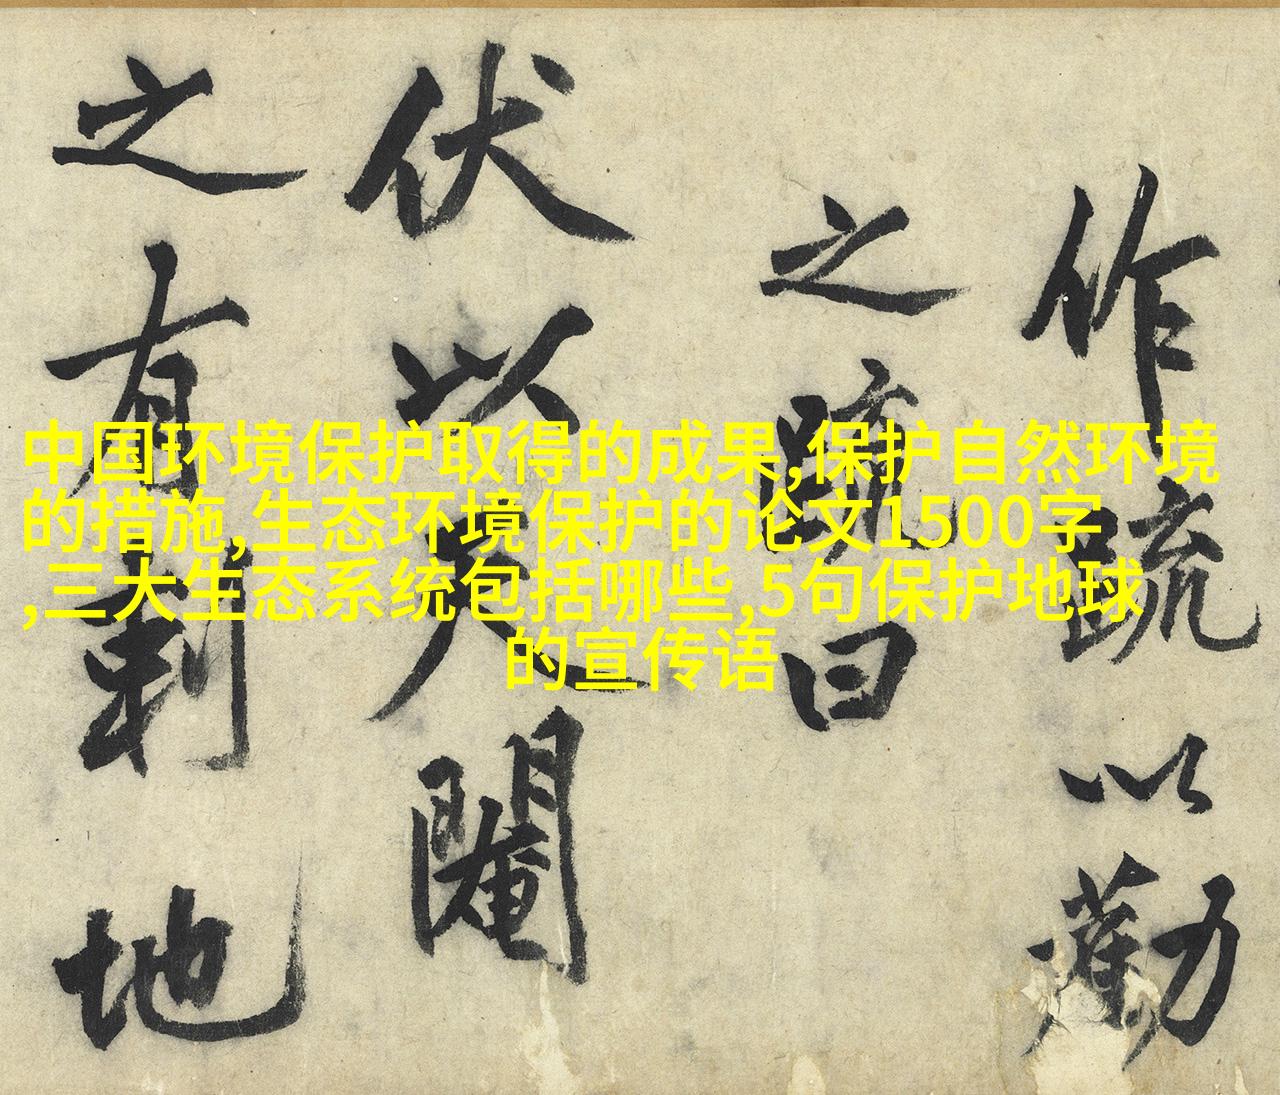 中国环境保护取得的成果,保护自然环境
的措施,生态环境保护的论文1500字
,三大生态系统包括哪些,5句保护地球
的宣传语
作疏以勸
之疏曰
伏以
之有地